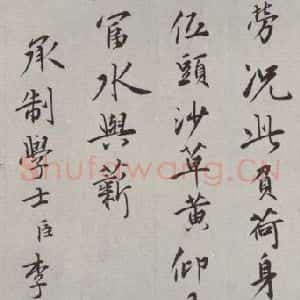 勞況此負荷身
低頭沙草黃仰
水與薪
承制學士臣李
Shufawang.CN